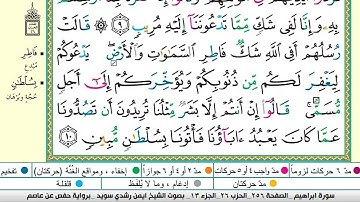 بِهِۦ وَإِنَّا لَفِى شَكٍّۢ مِّمَّا تَدْعُونَنَآ إِلَيْهِ مُرِيبٍۢ ٩ ۞ قَالَتْ
رُسُلُهُمْ أَفِى ٱللَّهِ شَكٌّۭ فَاطِرِ ٱلسَّمَٰوَٰتِ وَٱلْأَرْضِ ۖ يَدْعُوكُمْ
لِيَغْفِرَ لَكُم مِّن ذُنُوبِكُمْ وَيُؤَخِّرَكُمْ إِلَىٰٓ أَجَلٍۢ
مُّسَمًّۭى ۚ قَالُوٓا۟ إِنْ أَنتُمْ إِلَّا بَشَرٌۭ مِّثْلُنَا تُرِيدُونَ أَن تَصُدُّونَا
عَمَّا كَانَ يَعْبُدُ ءَابَآؤُنَا فَأْتُونَا بِسُلْطَٰنٍۢ مُّبِينٍۢ ١٠
• فَاطِرِ
مُبْدِعِ
• بِسُلْطَٰنٍ
حُجَّةٍ وَبُرْهَانٍ
مدّ ٦ حركات لزوماً مدّ ٢ أو ٤ أو ٦ جوازاً إخفاء، ومواقع الغُنَّة (حركتان) تفخيم
مدّ واجب ٤ أو ٥ حركات مدّ حركتان إدغام، وما لا يُلفَظ قلقلة
سورة ابراهيم . الصفحة ٢٥٦ . الحزب ٢٦ . الجزء ١٣ . بصوت الشيخ ايمن رشدي سويد . برواية حفص عن عاصم